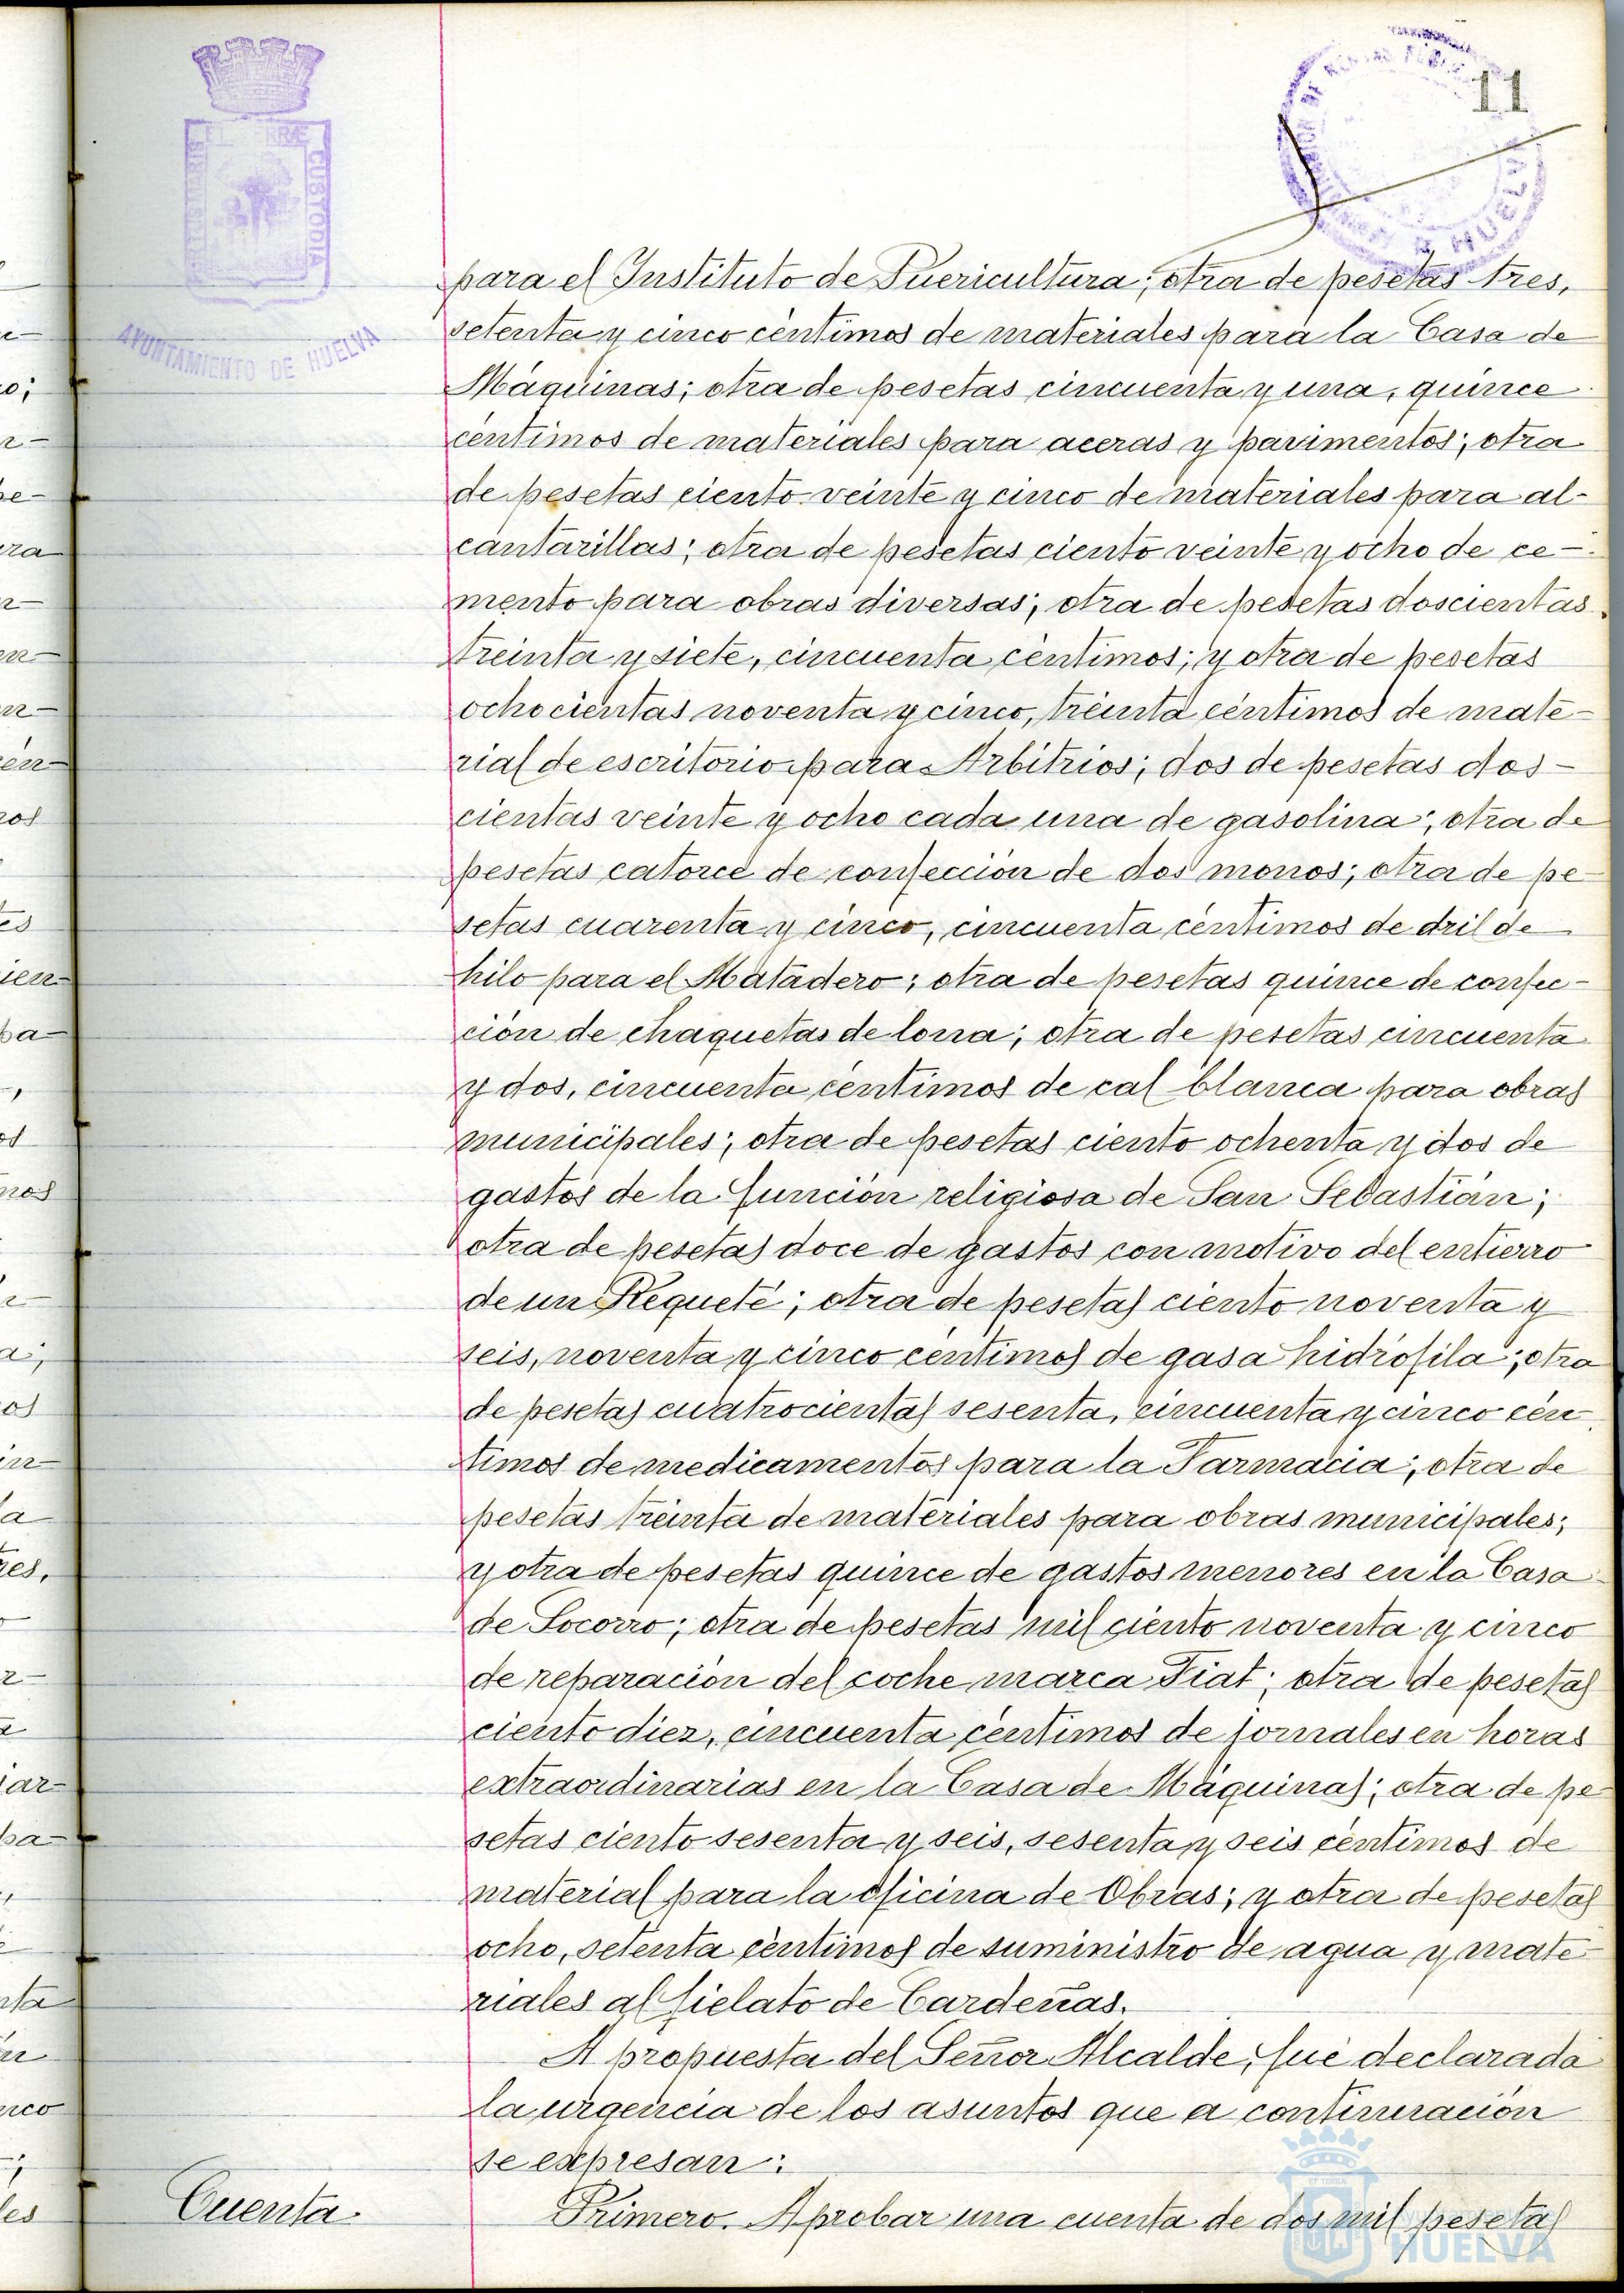 11
AYUNTAMIENTO DE HUELVA
CUSTODIA
HUELVA
para el Instituto de Puericultura; otra de pesetas tres,
setenta y cinco céntimos de materiales para la Casa de
Máquinas; otra de pesetas cincuenta y una, quince
céntimos de materiales para aceras y pavimentos; otra
de pesetas ciento veinte y cinco de materiales para al-
cantarillas; otra de pesetas ciento veinte y ocho de ce-
mento para obras diversas; otra de pesetas doscientas
treinta y siete, cincuenta céntimos; y otra de pesetas
ochocientas noventa y cinco, treinta céntimos de mate-
rial de escritorio para Arbitrios; dos de pesetas dos-
cientas veinte y ocho cada una de gasolina; otra de
pesetas catorce de confección de dos monos; otra de pe-
setas cuarenta y cinco, cincuenta céntimos de dril de
hilo para el Matadero; otra de pesetas quince de confec-
ción de chaquetas de lona; otra de pesetas cincuenta
y dos, cincuenta céntimos de cal blanca para obras
municipales; otra de pesetas ciento ochenta y dos de
gastos de la función religiosa de San Sebastián;
otra de pesetas doce de gastos con motivo del entierro
de un Requeté; otra de pesetas ciento noventa y
seis, noventa y cinco céntimos de gasa hidrófila; otra
de pesetas cuatrocientas sesenta, cincuenta y cinco cén
timos de medicamentos para la Farmacia; otra de
pesetas treinta de materiales para obras municipales;
y otra de pesetas quince de gastos menores en la Casa
de Socorro; otra de pesetas mil ciento noventa y cinco
de reparación del coche marca Fiat; otra de pesetas
ciento diez, cincuenta céntimos de jornales en horas
extraordinarias en la Casa de Máquinas; otra de pe-
setas ciento sesenta y seis, sesenta y seis céntimos de
material para la oficina de Obras; y otra de pesetas
ocho, setenta céntimos de suministro de agua y mate-
riales al fielato de Cardeñas.
A propuesta del Señor Alcalde, fué declarada
la urgencia de los asuntos que a continuación
se expresan:
Cuenta.
Primero. Aprobar una cuenta de dos mil pesetas
HUELVA